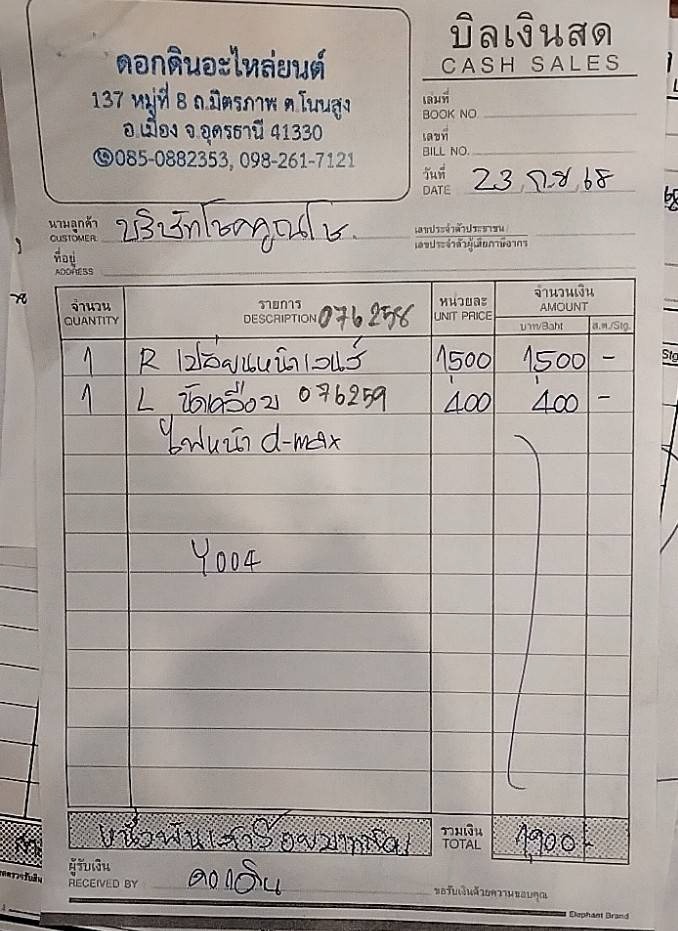 ดอกดินอะไหล่ยนต์
137 หมู่ที่ 8 ถ.มิตรภาพ ต.โนนสูง
อ.เมือง จ.อุดรธานี 41330
085-0882353, 098-261-7121
บิลเงินสด
CASH SALES
เล่มที่
BOOK NO.
เลขที่
BILL NO.
วันที่
DATE 23 ก.ย 68
นามลูกค้า
CUSTOMER บริษัทโชคคูณโช.
เลขประจำตัวประชาชน
เลขประจำตัวผู้เสียภาษีอากร
ที่อยู่
ADDRESS
จำนวน รายการ หน่วยละ จำนวนเงิน
QUANTITY DESCRIPTION 076258 UNIT PRICE AMOUNT
บาท/Baht ส.ต./Stg.
1 R เปลี่ยนหน้าเลนส์ 1500 1500 -
1 L ขัดเคลือบ 076259 400 400 -
ไฟหน้า d-max
Y004
หนึ่งพันเก้าร้อยบาทถ้วน รวมเงิน
TOTAL 1,900.-
ผู้รับเงิน
RECEIVED BY ดอกดิน
ขอรับเงินด้วยความขอบคุณ
Elephant Brand